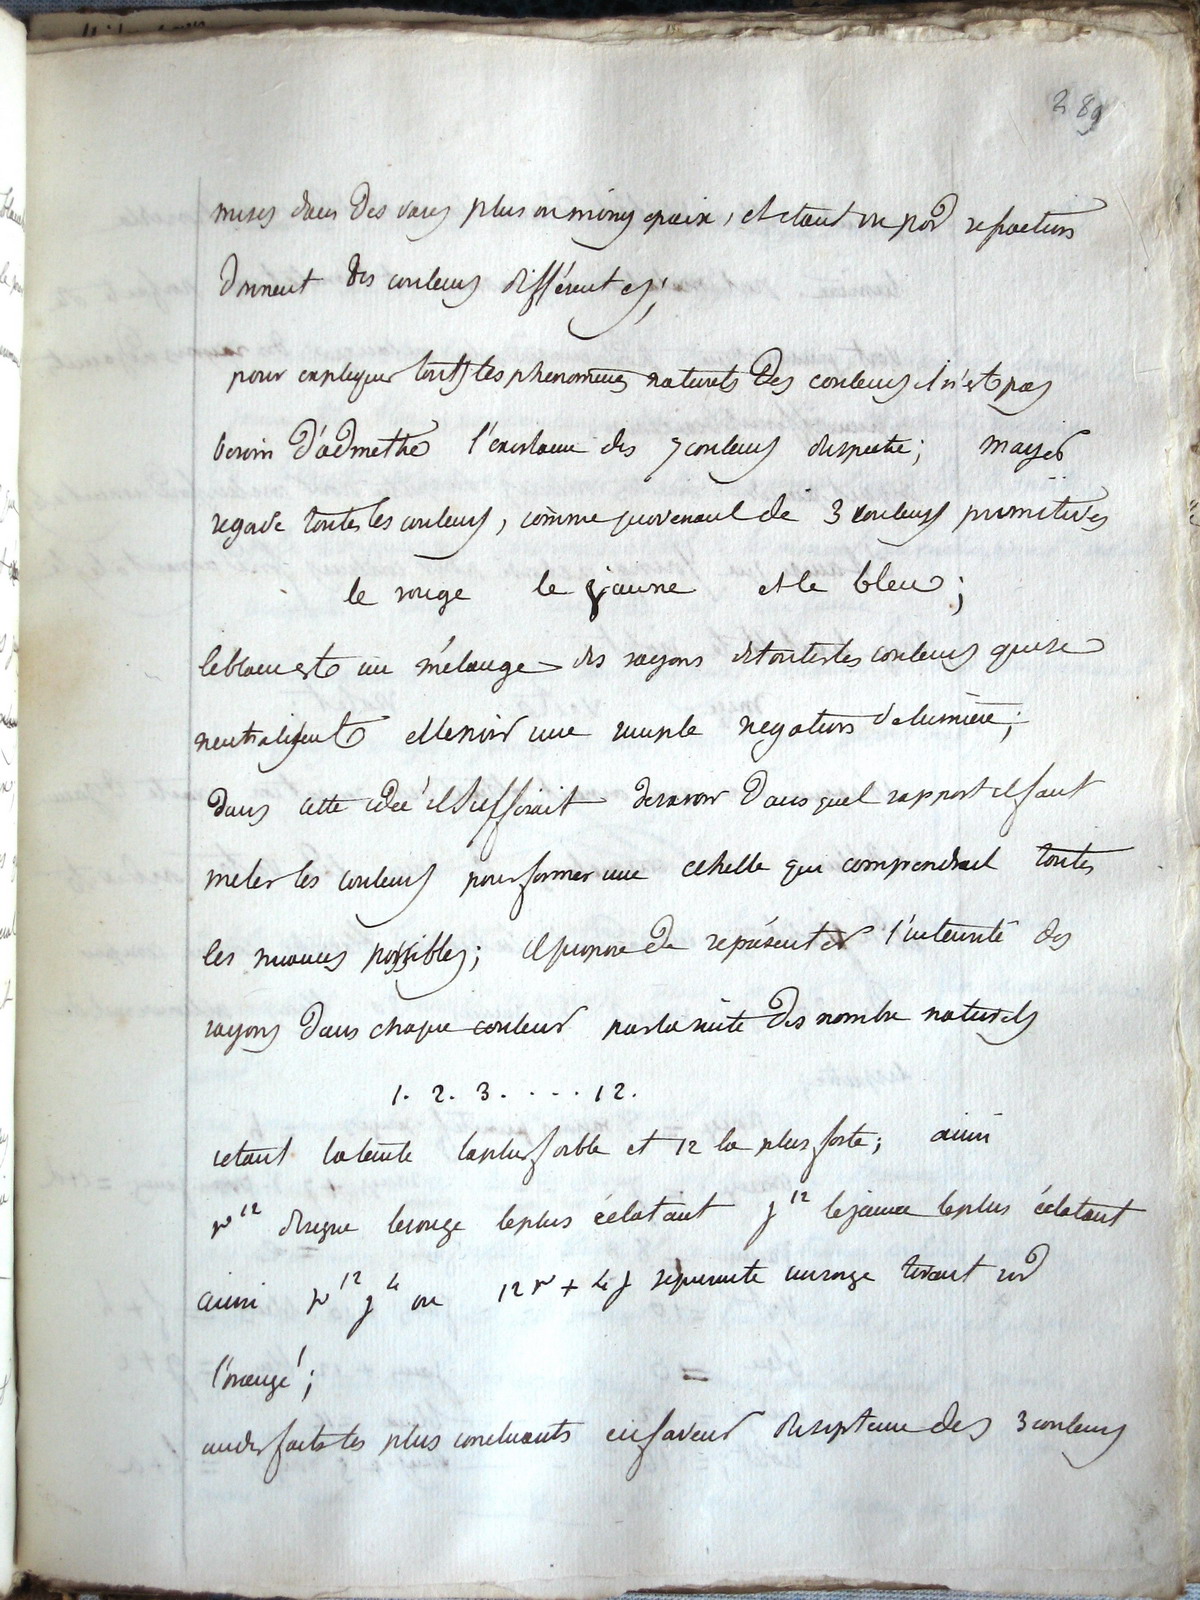 289
mises dans des vases plus ou moins epaix, et etant vu par refraction
donnent des couleurs différentes;
pour expliquer tous les phenomenes naturels des couleurs il n'est pas
besoin d'admettre l'existance des 7 couleurs du spectre; mayer
regarde toutes les couleurs, comme provenant de 3 couleurs primitives
le rouge le jaune et le bleu;
le blanc est un mélange des rayons de toutes les couleurs qui se
neutralisent et le noir une simple negation de lumière;
dans cette idée il suffirait de savoir dans quel rapport il faut
meler les couleurs pour former une echelle qui comprendrait toutes
les nuances possibles; il propose de représenter l'intensité des
rayons dans chaque couleur par la suite des nombre naturels
1. 2. 3. . . . . 12.
1 etant la teinte la plus foible et 12 la plus forte; ainsi
r¹² designe le rouge le plus éclatant j¹² le jaune le plus éclatant
ainsi r¹² j⁴ ou 12 r + 4 j represente un rouge tirant sur
l'orangé;
un des faits les plus concluants en faveur du systeme des 3 couleurs